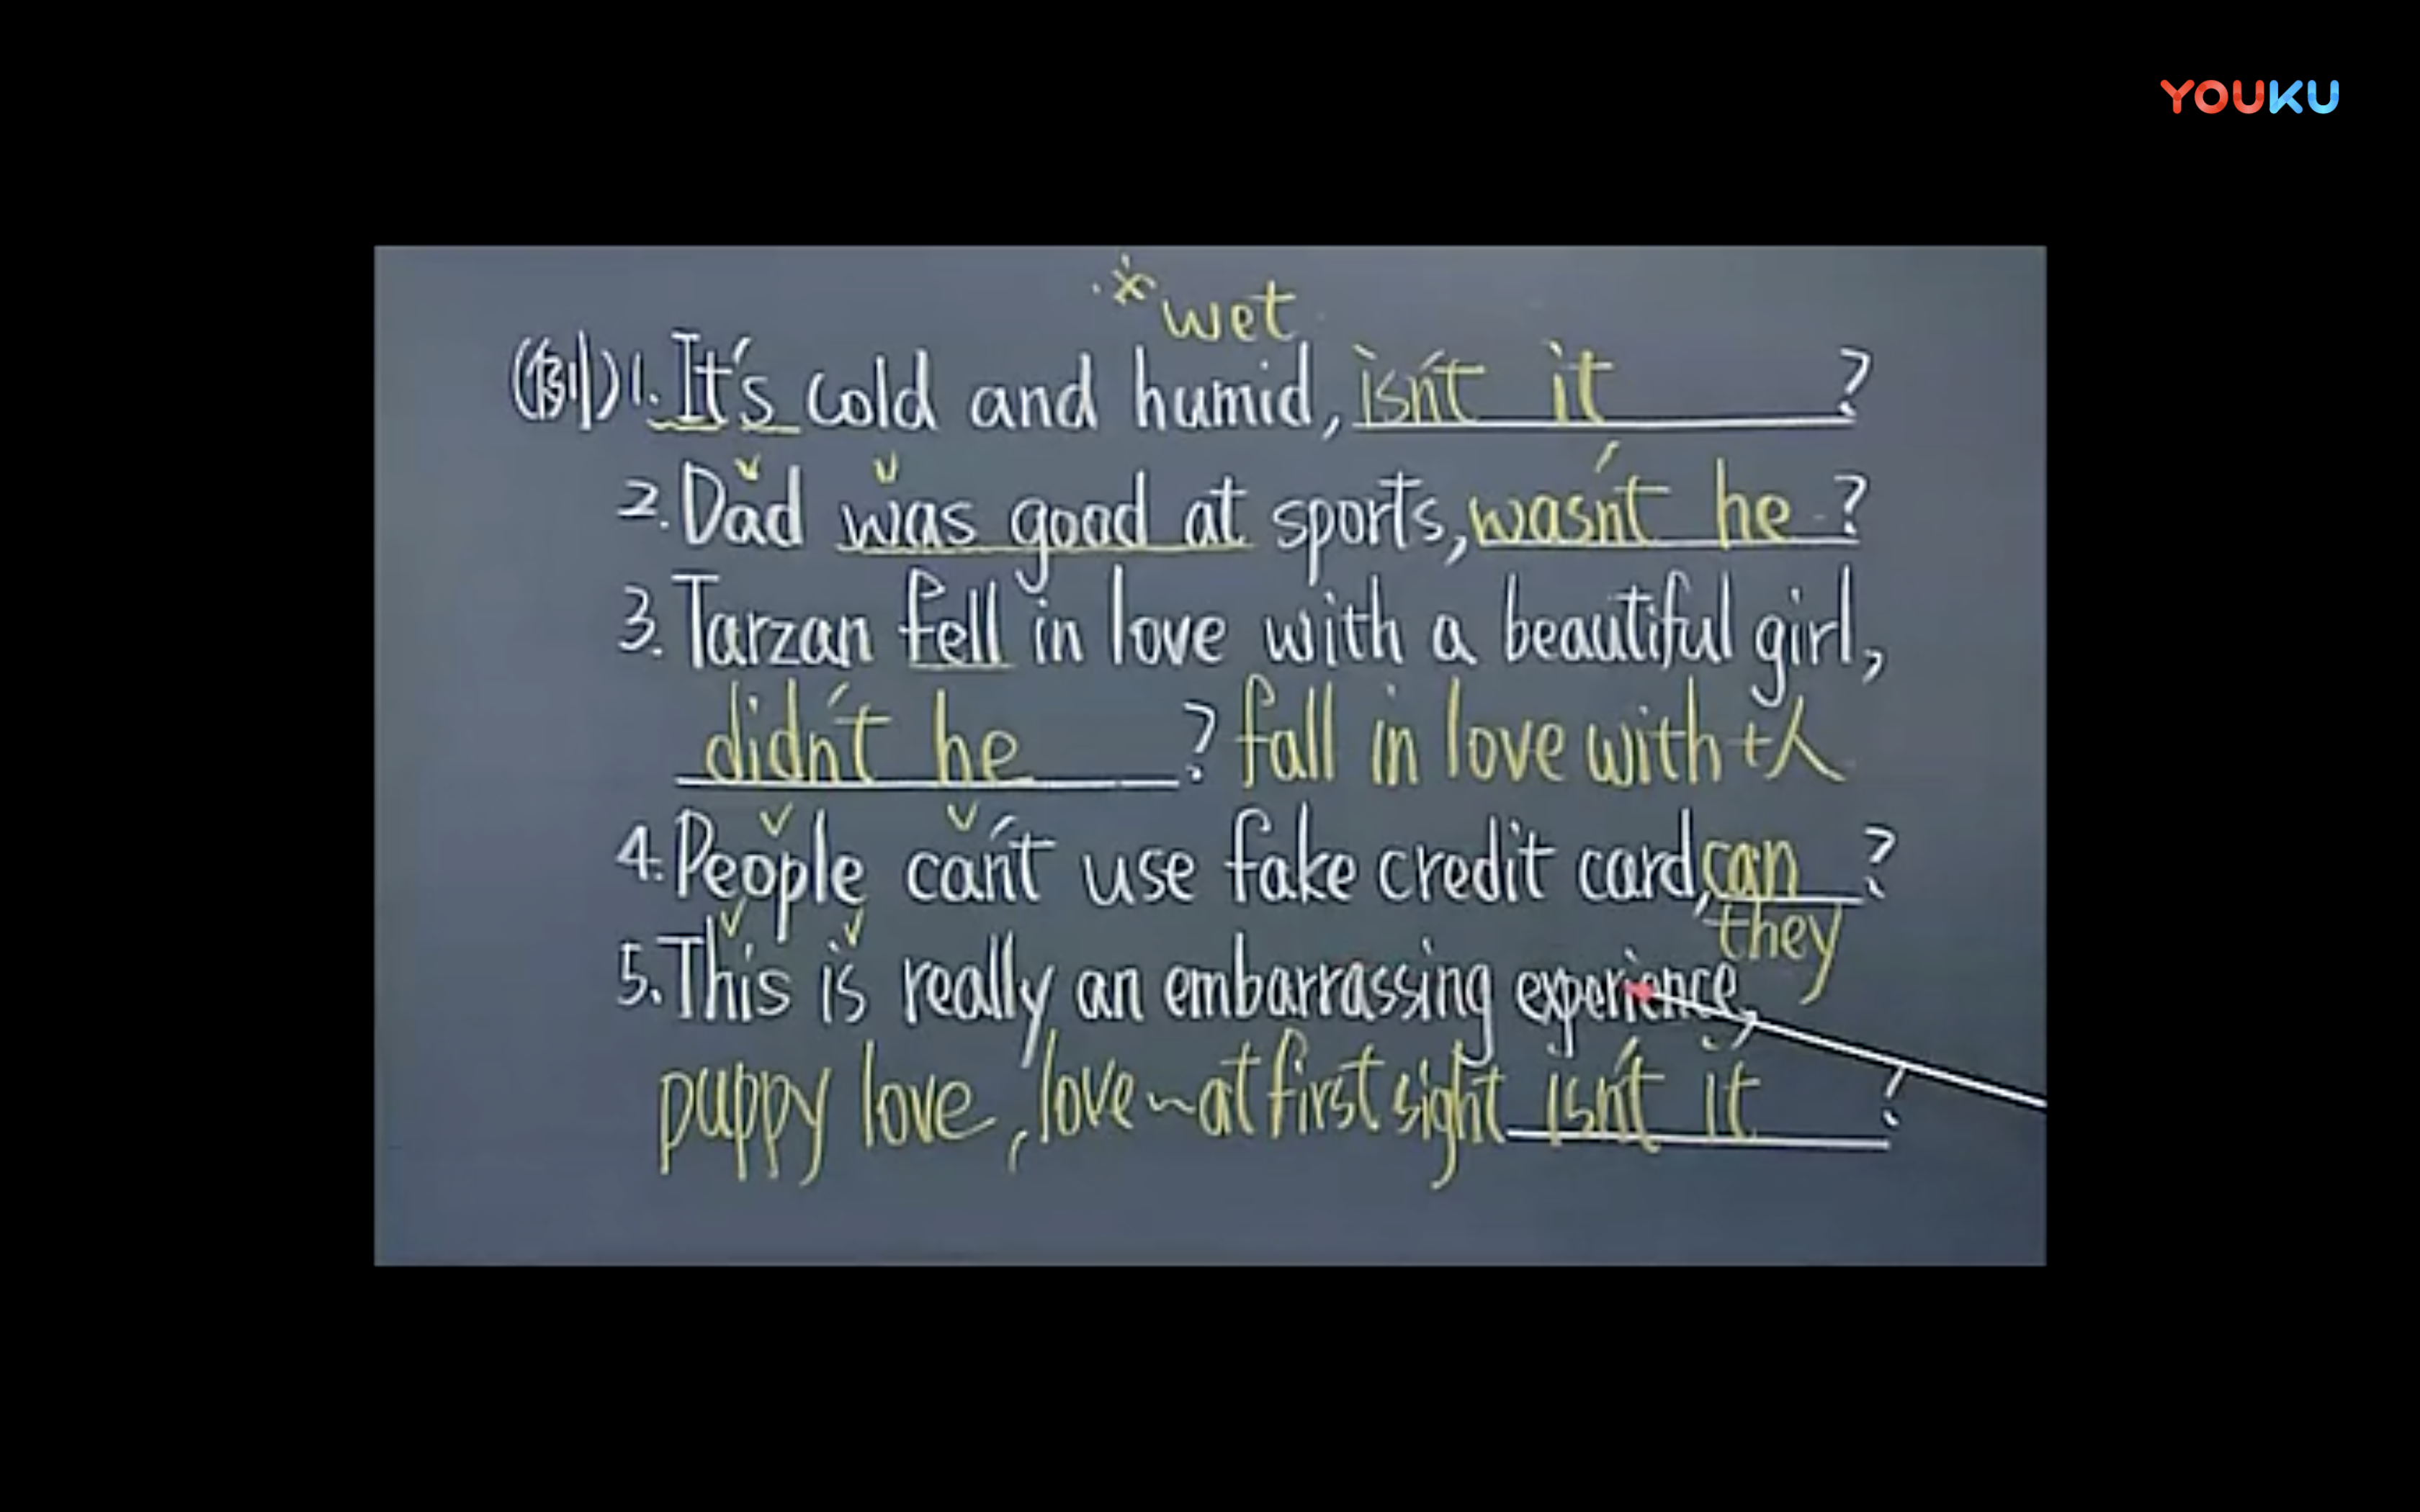 YOUKU
※wet
(例)1. It's cold and humid, isn't it ?
2. Dad was good at sports, wasn't he ?
3. Tarzan fell in love with a beautiful girl,
didn't he ? fall in love with +人
4. People can't use fake credit card, can ?
they
5. This is really an embarrassing experience,
puppy love, love~at first sight isn't it ?